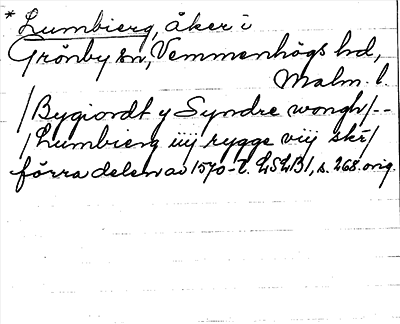 * Lumbierg, åker i
Grönby sn, Vemmenhögs hd,
Malm. l.
/Bygiordt y Syndre wongh/--
/Lumbierg iiij rygge viij skr/
förra delen av 1570-t. LSLB1, s. 268 orig.